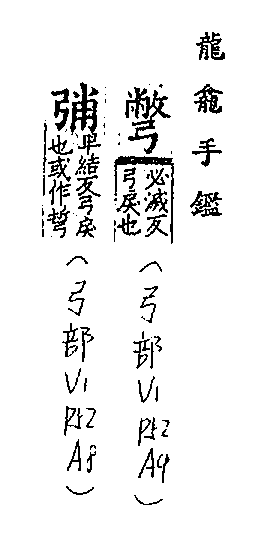 龍龕手鑑
弊
必滅反
弓戾也
（弓部 V1 P52 A9）
弻
卑結反弓戾
也或作
（弓部 V1 P52 A8）